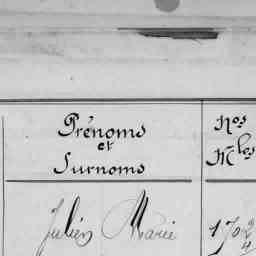 Prénoms
et
Surnoms
Nos
Mles
Julien Marie
1702
4